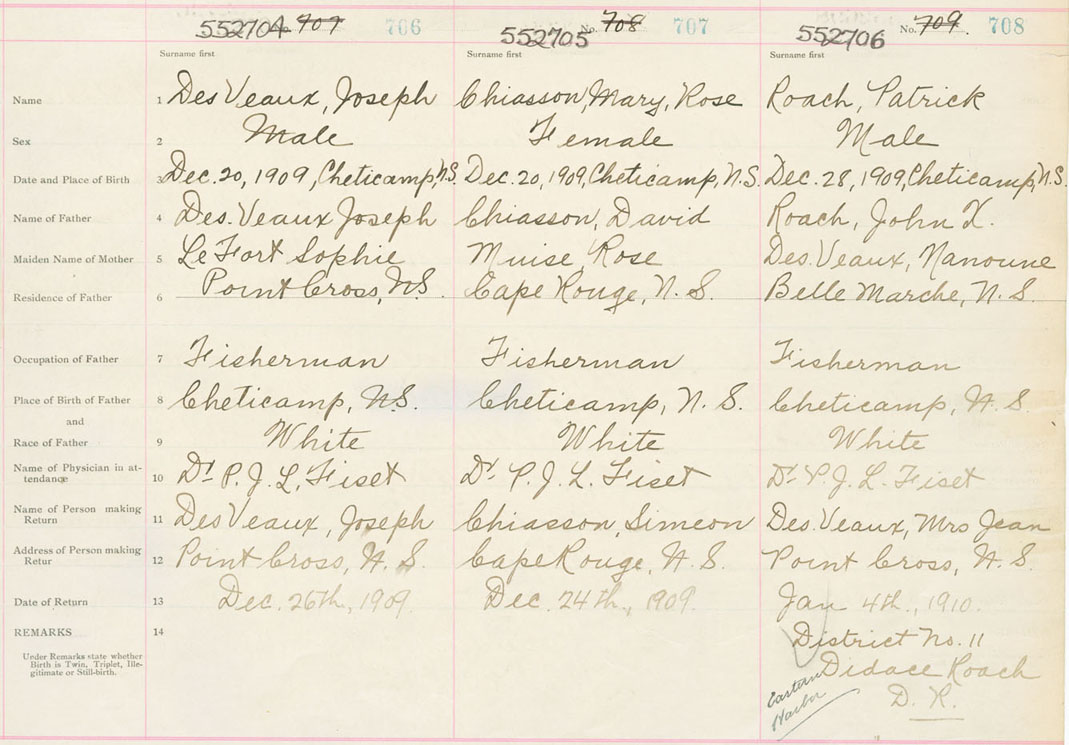 552704 No. 707 706 552705 No. 708 707 552706 No. 709. 708
Surname first Surname first Surname first
Name 1 DesVeaux, Joseph Chiasson, Mary, Rose Roach, Patrick
Sex 2 Male Female Male
Date and Place of Birth 3 Dec. 20, 1909, Cheticamp, N.S. Dec. 20, 1909, Cheticamp, N.S. Dec. 28, 1909, Cheticamp, N.S.
Name of Father 4 Des.Veaux Joseph Chiasson, David Roach, John X.
Maiden Name of Mother 5 Le Fort Sophie Muise Rose Des.Veaux, Nanoune
Residence of Father 6 Point Cross, N.S. Cape Rouge, N. S. Belle Marche, N. S.
Occupation of Father 7 Fisherman Fisherman Fisherman
Place of Birth of Father 8 Cheticamp, N.S. Cheticamp, N. S. Cheticamp, N. S.
and
Race of Father 9 White White White
Name of Physician in at-
tendance 10 Dr. P. J. L. Fiset Dr. P. J. L. Fiset Dr. P. J. L. Fiset
Name of Person making
Return 11 DesVeaux, Joseph Chiasson, Simeon Des.Veaux, Mrs Jean
Address of Person making
Retur 12 Point Cross, N. S. Cape Rouge, N. S. Point Cross, N. S.
Date of Return 13 Dec. 26th, 1909. Dec. 24th., 1909. Jan 4th., 1910.
REMARKS 14 District No. 11
Under Remarks state whether
Birth is Twin, Triplet, Ille-
gitimate or Still-birth.
Didace Roach
D. R.
Eastern
Harbor